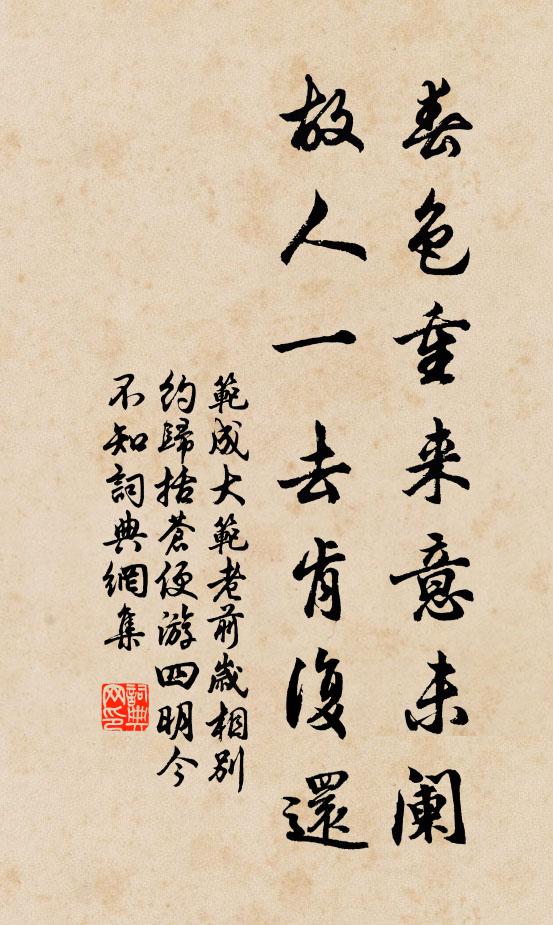 春色重来意未阑
故人一去肯復還
範成大範老前歲相別
約歸括蒼便游四明今
不知詞典網集
詞典网印